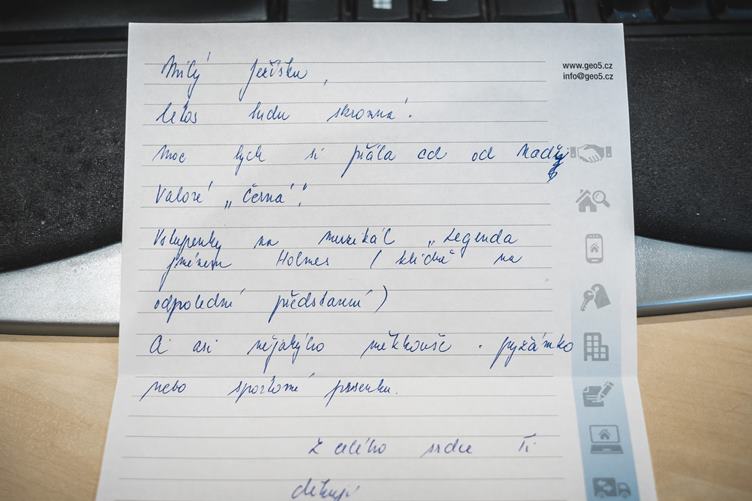 Milý Ježíšku,
www.geo5.cz
info@geo5.cz
letos budu skromná.
Moc bych si přála cd od Nadi
Valové „Černá".
Vstupenky na muzikál „Legenda
jménem Holmes (klidně na
odpolední představení)
A asi nějakýho měkkouše. pyžámko
nebo sportovní
Z celého srdce Ti
děkuji